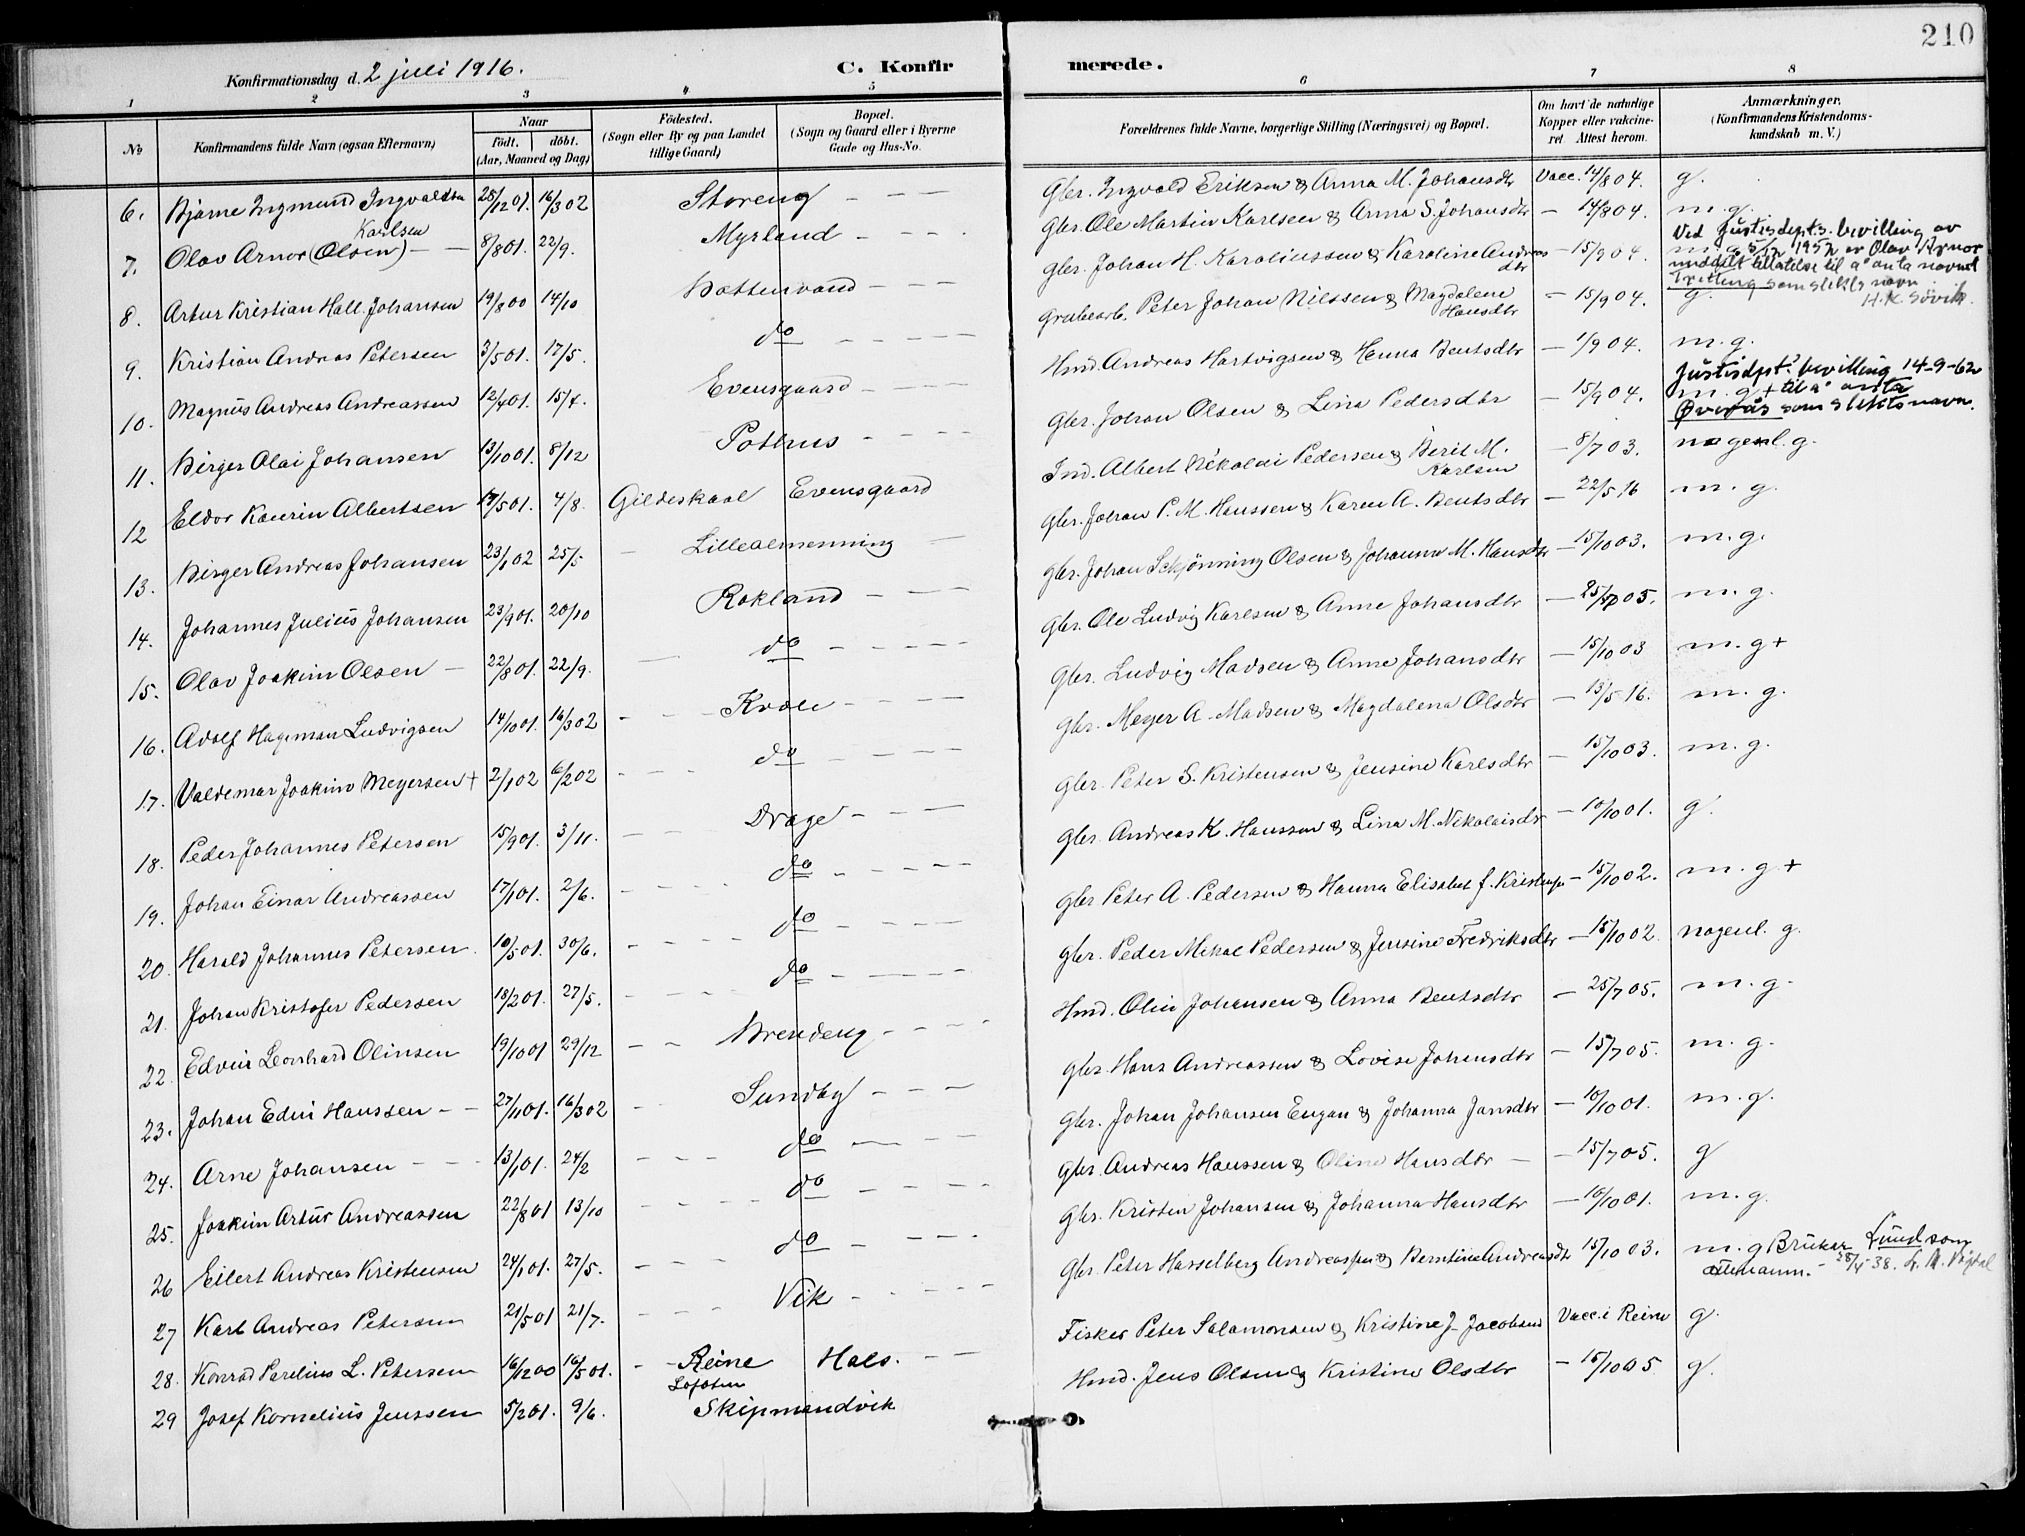 210
Konfirmationsdag d. 2 juli 1916.
C. Konfirmerede.
1 2 3 4 5 6 7 8
No
Konfirmandens fulde Navn (ogsaa Efternavn)
Naar
født. døbt.
(Aar, Maaned og Dag)
Fødested.
(Sogn eller By og paa Landet
tillige Gaard)
Bopæl.
(Sogn og Gaard eller i Byerne
Gade og Hus-No.
Forældrenes fulde Navne, borgerlige Stilling (Næringsvei) og Bopæl.
Om havt de naturlige
Kopper eller vakcine-
ret. Attest herom.
Anmærkninger.
(Konfirmandens Kristendoms-
kundskab m. V.)
6. Bjarne Ingmund Ingvaldsen 28/12 01. 16/3 02 Storeng Gbr. Ingvald Eriksen & Anna M. Johansdtr Vacc. 14/8 04. g.
7. Olav Arnor (Olsen) Karlsen 8/8 01. 22/9. Myrland Gbr. Ole Martin Karlsen & Anna S. Johansdtr — 14/8 04. m. g.
Ved Justisdepts. bevilling av
5/12 1952 er Olav Arnor
meddelt tillatelse til å anta navnet
som slektsnavn
H.K. Søvik
8. Artur Kristian Hall Johansen 19/8 00 14/10 Hattenvand Gbr. Johan H. Karoliussen & Karoline Andreasdtr — 15/9 04. m. g.
9. Kristian Andreas Petersen 3/5 01. 17/5. do Grubearb. Peter Johan Nilssen & Magdalene Hansdtr — 15/9 04. g.
10. Magnus Andreas Andreassen 12/4 01. 15/7. Evensgaard Hmd. Andreas Hartvigsen & Hanna Bentsdtr — 1/9 04. m. g.
11. Birger Olai Johansen 13/10 01. 8/12 Pothus Gbr. Johan Olsen & Lina Pedersdtr — 15/9 04. m. g +
Justisdpt's bevilling 14-9-62
til å anta
Øverås som slektsnavn.
12 Eldor Kaurin Albertsen 17/5 01. 4/8. Gildeskaal Evensgaard Ind. Albert Nikolai Pedersen & Berit M. Karlsen — 8/7 03. nogenl. g.
13. Birger Andreas Johansen 23/1 02 25/5 Lillealmenning Gbr. Johan P. M. Hanssen & Karen A. Bentsdtr — 22/5 16 m. g.
14. Johannes Julius Johansen 23/9 01. 20/10 Rokland Gbr. Johan Schjønning Olsen & Johanna M. Hansdtr — 15/10 03. m. g.
15. Olav Joakim Olsen 22/8 01. 22/9. do Gbr. Ole Ludvig Karlsen & Anne Johansdtr — 25/7 05. m. g.
16. Adolf Hagman Ludvigsen 14/10 01. 16/3 02 Kvæl Gbr. Ludvig Madsen & Anne Johansdtr — 15/10 03 m. g +
17. Valdemar Joakim Meyersen + 2/1 02 6/2 02 do Gbr. Meyer A. Madsen & Magdalena Olsdtr — 13/5 16. m. g.
18. Peder Johannes Petersen 15/9 01. 3/11. Drage Gbr. Peter S. Kristensen & Jensine Karlsdtr — 15/10 03. m. g.
19. Johan Einar Andreassen 17/1 01. 2/6. do Gbr. Andreas K. Hanssen & Lina M. Nikolaisdtr — 10/10 01. g.
20. Harald Johannes Petersen 10/5 01. 30/6. do Gbr. Peter A. Pedersen & Hanna Elisabet f. Kristensen — 15/10 02. m. g +
21. Johan Kristofer Pedersen 18/2 01. 27/5. do Gbr. Peder Mikal Pedersen & Jensine Fredriksdtr — 15/10 02. nogenl. g.
22. Edvin Leonhard Olinsen 19/10 01 29/12 Brendeng Hmd. Olin Johansen & Anna Bentsdtr — 25/7 05. m. g.
23. Johan Edin Hanssen 27/11 01. 16/3 02 Sundby Gbr. Hans Andreassen & Lovise Johansdtr — 15/7 05. m. g.
24. Arne Johansen 13/1 01. 24/2 do Gbr. Johan Johansen Engan & Johanna Jansdtr — 10/10 01. m. g.
25. Joakim Artur Andreassen 22/8 01 13/10 do Gbr. Andreas Hanssen & Oline Hansdtr — 15/7 05. g
26 Eilert Andreas Kristensen 24/1 01. 27/5. do Gbr. Kristen Johansen & Johanna Hansdtr — 10/10 01. m. g.
27 Karl Andreas Petersen 21/5 01 21/7. Vik Gbr. Peter Hasselberg Andreassen & Berntine Andreasdtr 15/10 03. m. g Bruker Lund som
28/4-38.
28. Konrad Parelius L. Petersen 16/12 00 16/5 01. Reine Lofoten Hals. Fisker Peter Salamonsen & Kristine J. Jacobsen Vacc. i Reine g.
29 Josef Kornelius Jenssen 5/2 01. 9/6. Skipmandvik Hmd. Jens Olsen & Kristine Olsdtr — 15/10 05 g.